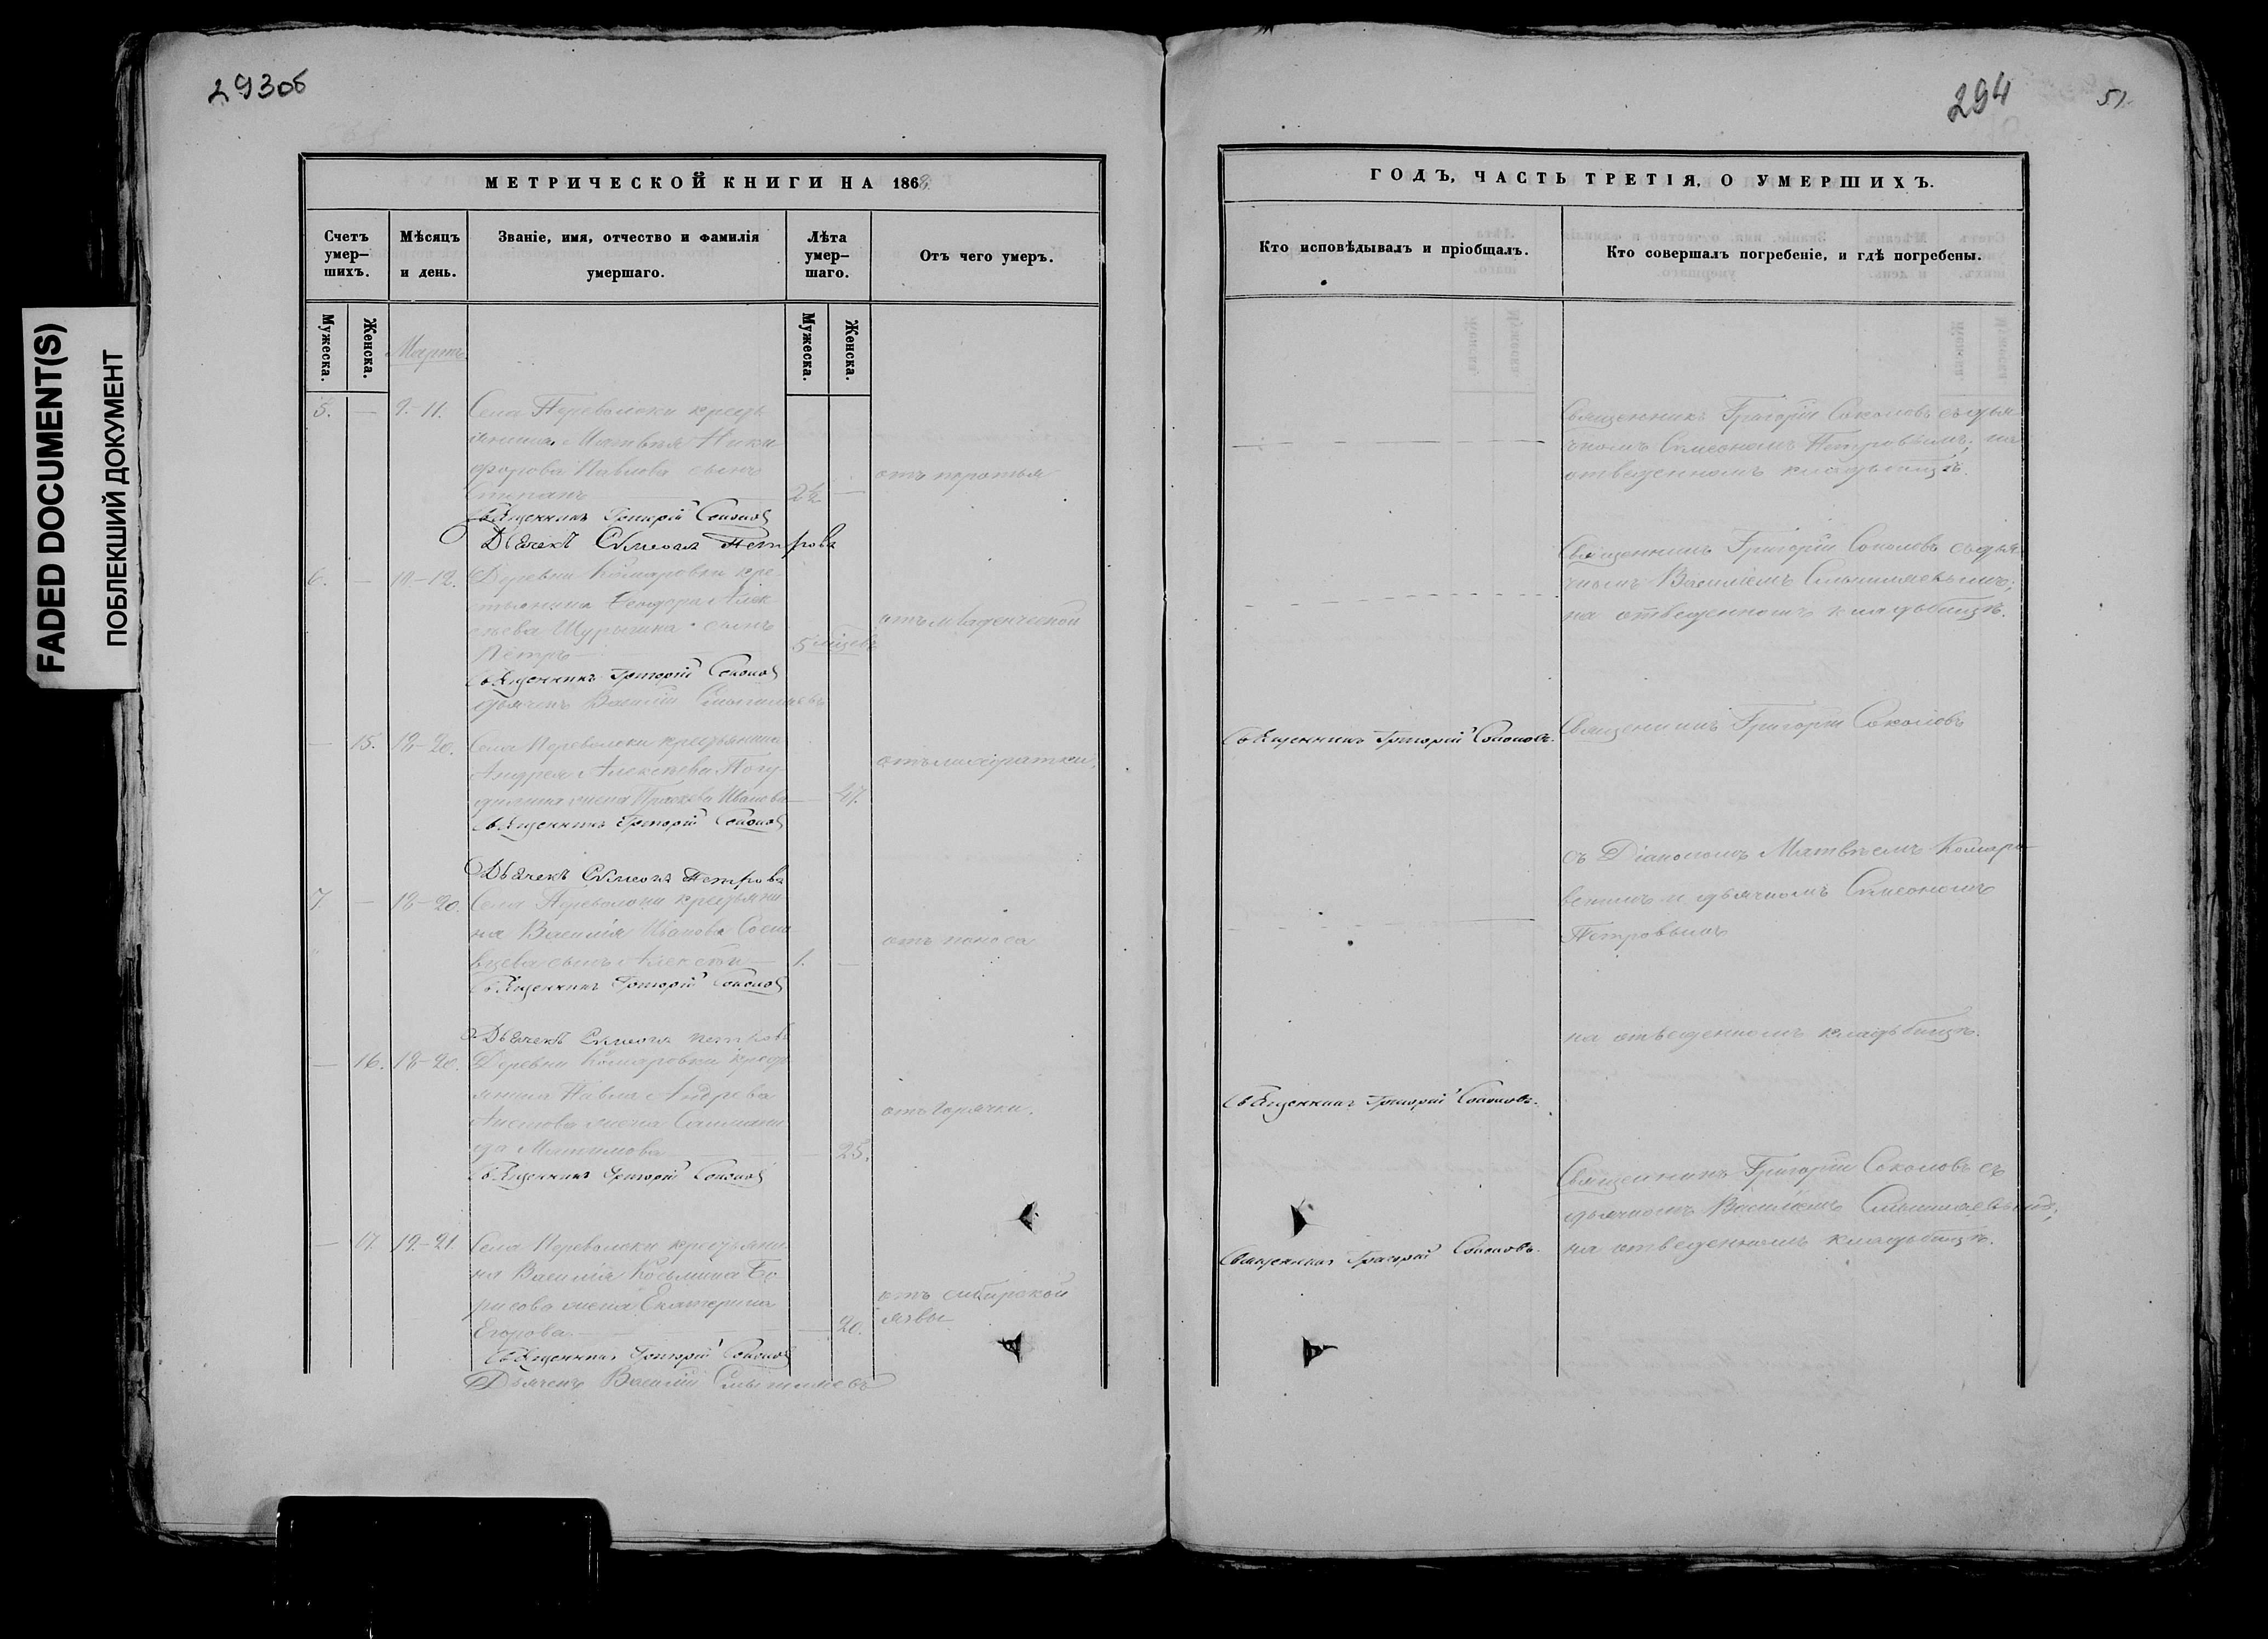 293об
МЕТРИЧЕСКОЙ КНИГИ НА 1868
Счетъ умер-шихъ.
Мѣсяцъ и день.
Званіе, имя, отчество и фамилія умершаго.
Лѣта умер-шаго.
Отъ чего умеръ.
Мужеска.
Женска.
Мужеска.
Женска.
Мартъ
5. — 9.-11. Села Переволоки кресть
янина Матвѣя Ники
форова Павлова сынъ
Степанъ 2½ —
Священникъ Григорій Соколовъ
Дьячекъ Симеонъ Петровъ
6. — 10-12. Деревни Комаровки кре-
стьянина Ѳеодора Алек
сѣева Шурыгина сынъ
Петръ 5 мѣсяцевъ
отъ младенческой
Священникъ Григорій Соколовъ
дьячекъ Василій
— 15. 18-20. Села Переволоки крестьянина
Андрея Алексѣева
жена Ирина Иванова — 47.
Священникъ Григорій Соколовъ
Дьячекъ Симеонъ Петровъ
7 — 18-20. Села Переволоки крестьяни
на Василія Иванова
сынъ Алексѣй — 1. —
отъ поноса
Священникъ Григорій Соколовъ
Дьячекъ Симеонъ Петровъ
— 16. 18-20. Деревни Комаровки кресть
янина Павла Андреева
жена
— 25.
отъ горячки.
Священникъ Григорій Соколовъ
— 17. 19-21. Села Переволоки крестьяни
на Василія Козьмина Бо
рисова жена Екатерина
Егорова — 20.
отъ сибирской
язвы
Священникъ Григорій Соколовъ
Дьячекъ Василій
FADED DOCUMENT(S)
ПОБЛЕКШИЙ ДОКУМЕНТ
294
51
ГОДЪ, ЧАСТЬ ТРЕТІЯ, О УМЕРШИХЪ.
Кто исповѣдывалъ и пріобщалъ.
Кто совершалъ погребеніе, и гдѣ погребены.
Священникъ Григорій Соколовъ съ дья-
чкомъ Симеономъ Петровымъ; на
отведенномъ кладьбищѣ.
Священникъ Григорій Соколовъ съ дья-
чкомъ Василіемъ
на отведенномъ кладьбищѣ.
Священникъ Григорій Соколовъ.
Священникъ Григорій Соколовъ
съ Діакономъ Матвѣемъ Комаро-
вскимъ и дьячкомъ Симеономъ
Петровымъ
на отведенномъ кладьбищѣ.
Священникъ Григорій Соколовъ.
Священникъ Григорій Соколовъ съ
дьячкомъ Василіемъ
на отведенномъ кладьбищѣ.
Священникъ Григорій Соколовъ.